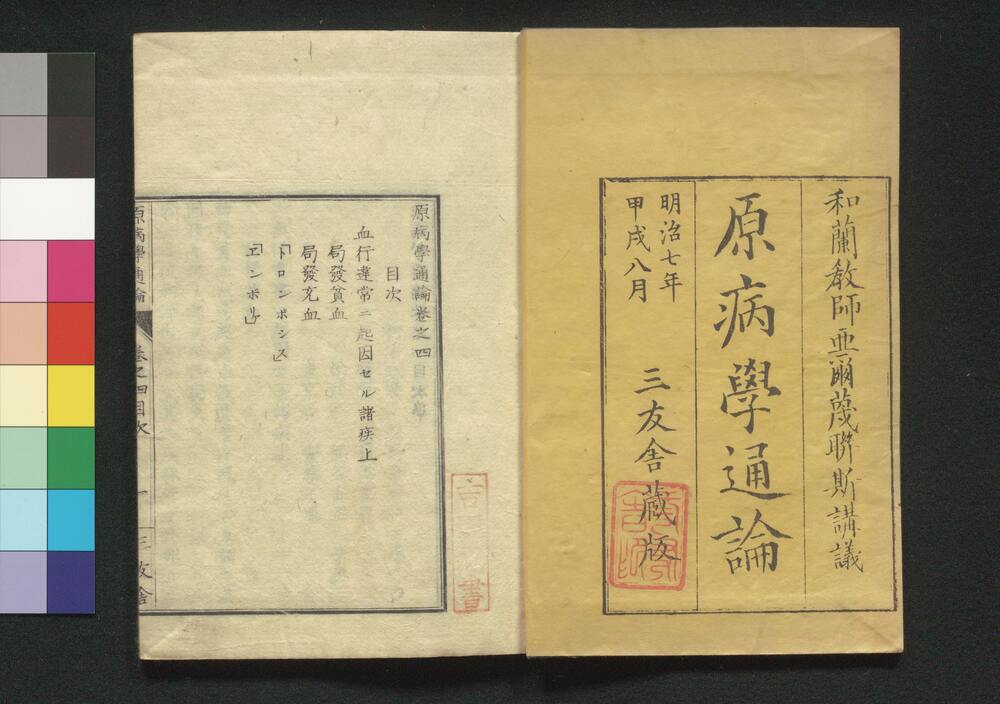 和蘭教師亜爾蔑聯斯講議
原病學通論
明治七年
甲戌八月
三友舎蔵版
原病學通論巻之四
目次
血行違常ニ起因セル諸疾上
局發貧血
局發充血
「トロンボシス」
「エンボリ」
原病學通論
巻之四目次
一
三友舎